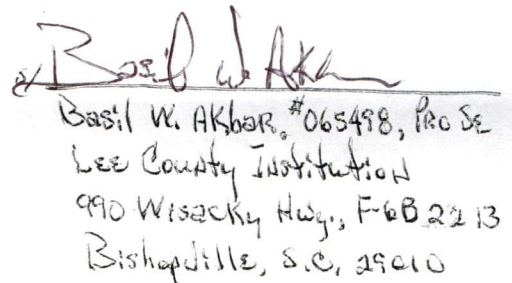 s/ Basil W. Akbar
Basil W. Akbar, #065498, Pro Se
Lee County Institution
990 Wisacky Hwy., F-6B 2213
Bishopville, S.C. 29010